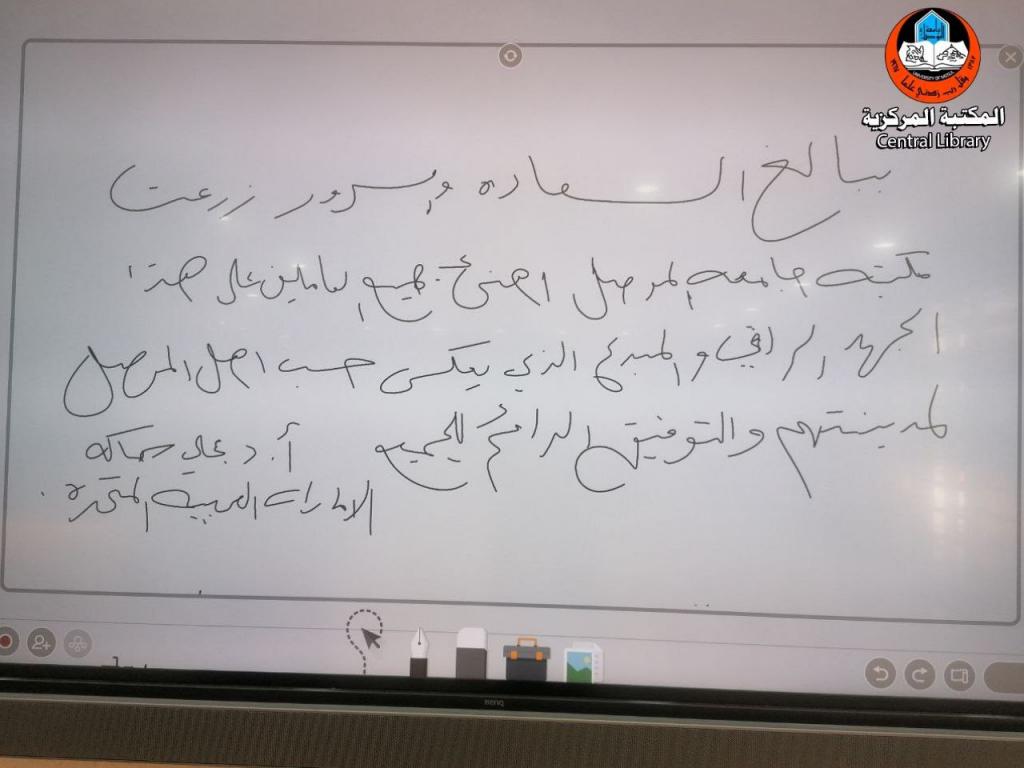 المكتبة المركزية
Central Library
UNIVERSITY OF MOSUL
وقل رب زدني علما
ببالغ السعاده والسرور زرعت
مكتبه جامعه الموصل اهنئ جميع العاملين على هذا
الجهد الراقي والمبدع الذي يعكس حب اهل الموصل
لمدينتهم والتوفيق الدائم للجميع
أ. د. علي حماكه
الامارات العربيه المتحده.
BenQ